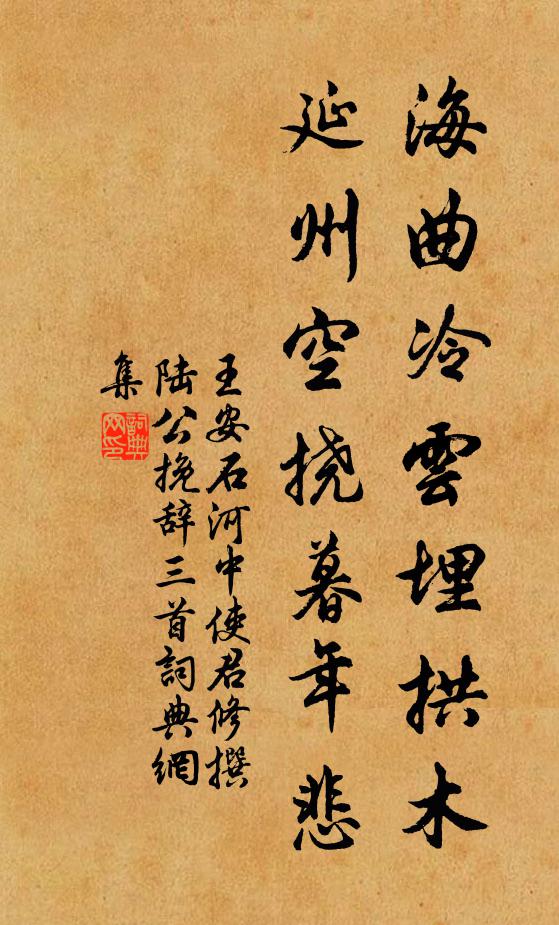 海曲冷雲埋拱木
延州空挠暮年悲
王安石河中使君修撰
陆公挽辞三首詞典網
集
詞典
网印